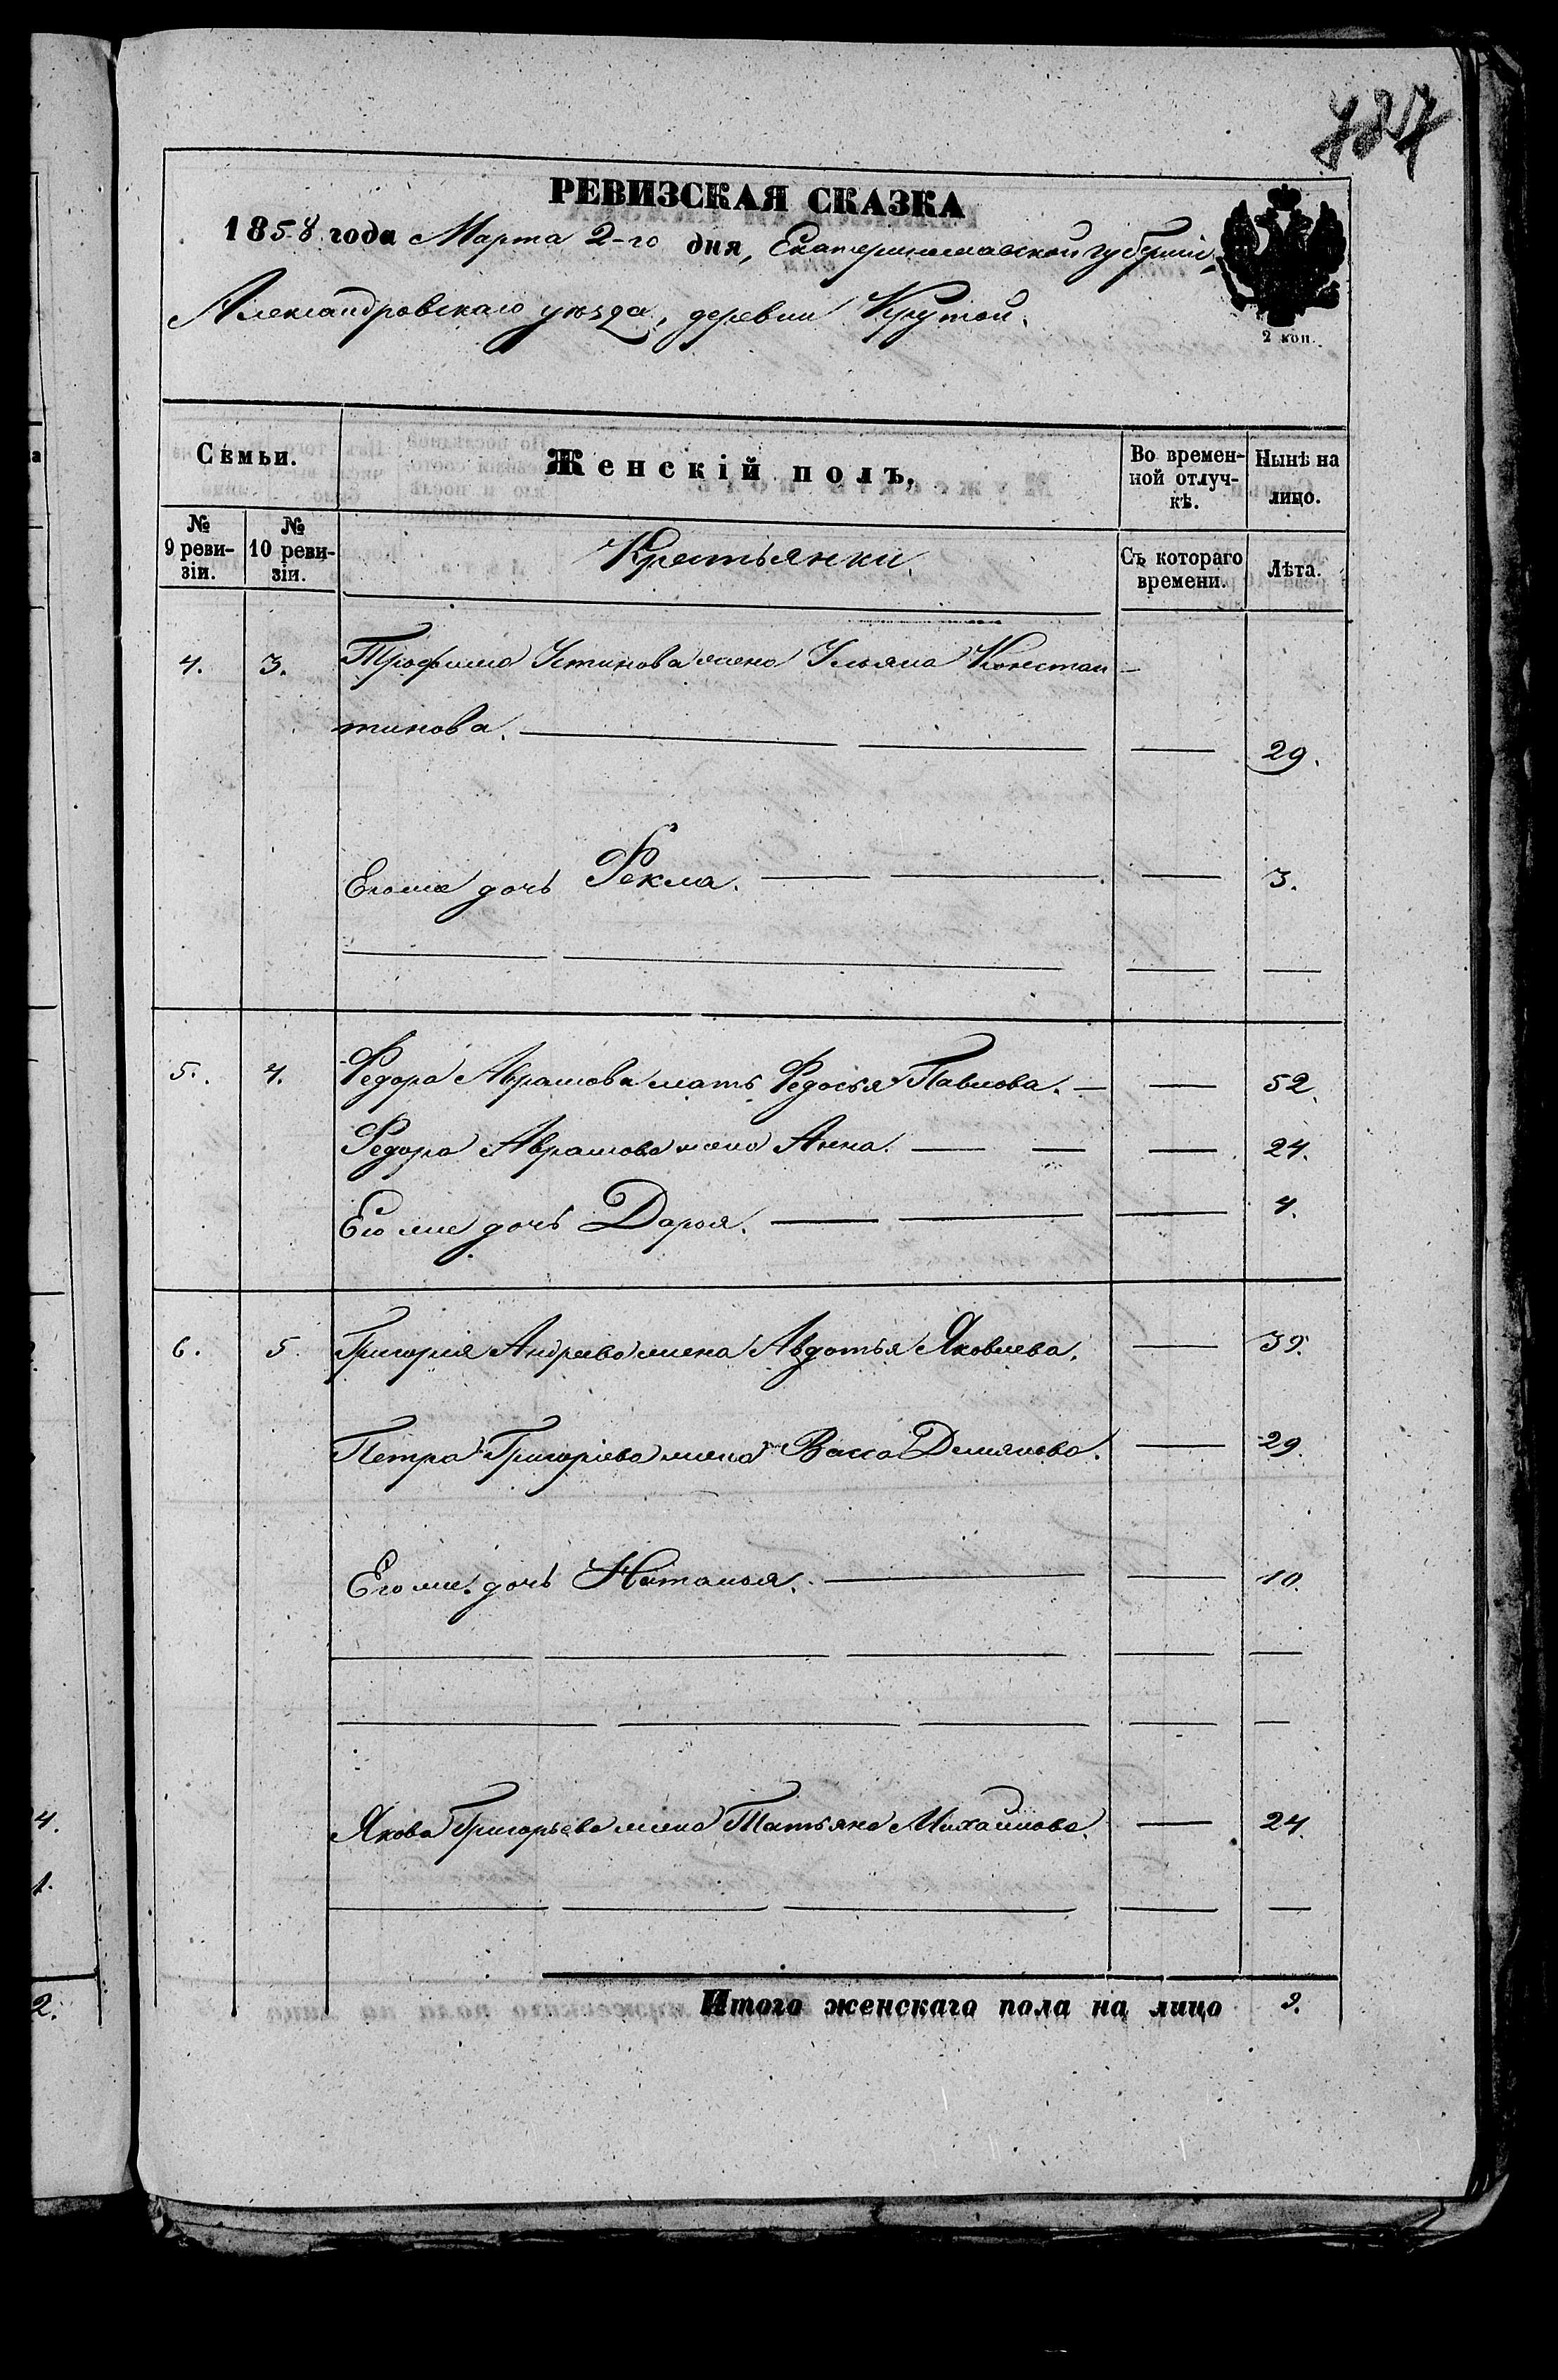 727
РЕВИЗСКАЯ СКАЗКА
1858 года Марта 2-го дня, Екатеринославской губерніи,
Александровскаго уѣзда, деревни Крутой.
2 коп.
Семьи. Женскій полъ, Во времен- Нынѣ на
ной отлуч- лицо.
кѣ.
№ № Крестьянки.
9 реви- 10 реви- Съ котораго Лѣта.
зіи. зіи. времени.
4. 3. Трофима Устинова жена Ульяна Констан-
тинова. 29.
Его же дочь Фекла. 3.
5. 4. Федора Абрамова мать Федосья Павлова. 52.
Федора Абрамова жена Анна. 24.
Его же дочь Дарья. 4.
6. 5. Григорія Андреева жена Авдотья Яковлева. 39.
Петра Григоріева жена Васса Демянова. 29.
Его же дочь Наталья. 10.
Якова Григорьева жена Татьяна Михайлова. 24.
Итого женскаго пола на лицо 9.
а
4.
1.
2.